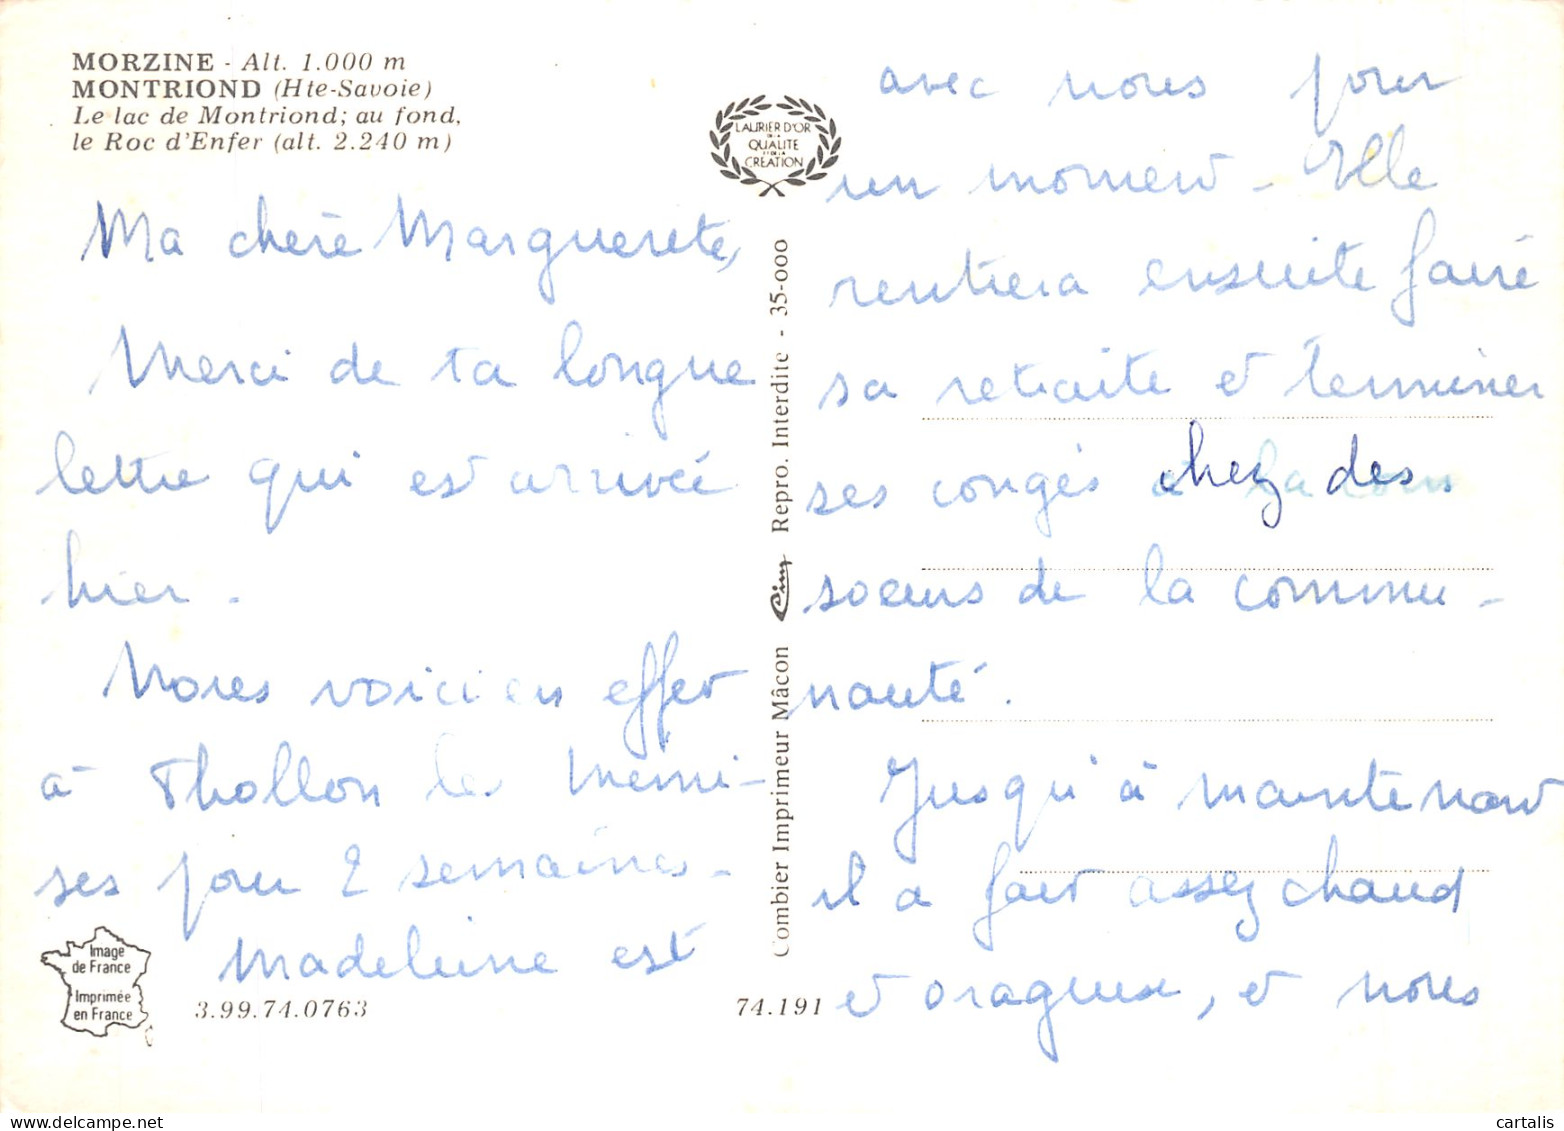 MORZINE - Alt. 1.000 m
MONTRIOND (Hte-Savoie)
Le lac de Montriond; au fond,
le Roc d'Enfer (alt. 2.240 m)
Ma chère Marguerete,
Merci de ta longue
lettre qui est arrivée
hier.
Nous voici en effet
à Thollon les Memi-
ses pour 2 semaines.
Madeleine est
Image
de France
Imprimée
en France
3.99.74.0763
74.191
LAURIER D'OR
DE LA
QUALITE
ET DE LA
CREATION
Combier Imprimeur Mâcon Cim Repro. Interdite - 35-000
avec nous pour
un moment - Elle
rentrera ensuite faire
sa retraite et terminer
ses congés chez des
soeurs de la commu-
nauté.
Jusqu'à maintenant
il a fait assez chaud
et orageux, et nous
cartalis
delcampe.net